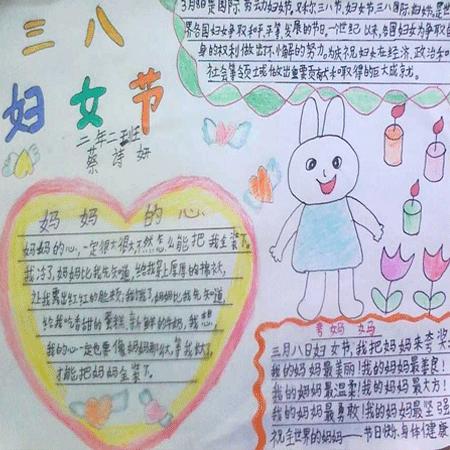 三八
妇女节
二年二班
蔡诗妍
3月8日是国际劳动妇女节,又称三八节,妇女节三八国际妇女节,是世
界各国妇女争取和平平等,发展的节日。一世纪以来,各国妇女为争取自
身的权利做出不懈的努力。为庆祝妇女在经济、政治和
社会等领域做出重要贡献和取得的巨大成就。
妈妈的心
妈妈的心,一定很大很大不然怎么能把我全装下。
我冷了,妈妈比我先知道,给我穿上厚厚的棉衣,
让我露出红红的脸颊;我饿了,妈妈比我先知道,
给我吃香甜的蛋糕,新鲜的牛奶,我想,
我的心一定也像妈妈那么大,等我大了,
才能把妈妈全装下。
夸妈妈
三月八日妇女节,我把妈妈来夸奖
我的妈妈最美丽!我的妈妈最善良!
我的妈妈最温柔!我的妈妈最大方!
我的妈妈最勇敢!我的妈妈最坚强
祝全世界的妈妈——节日快乐,身体健康